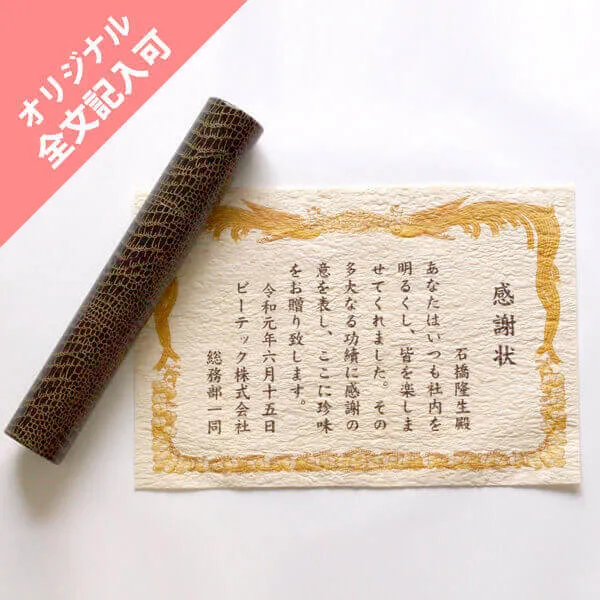 オリジナル
全文記入可
感謝状
石橋隆生殿
あなたはいつも社内を
明るくし、皆を楽しま
せてくれました。その
多大なる功績に感謝の
意を表し、ここに珍味
をお贈り致します。
令和元年六月十五日
ピーテック株式会社
総務部一同